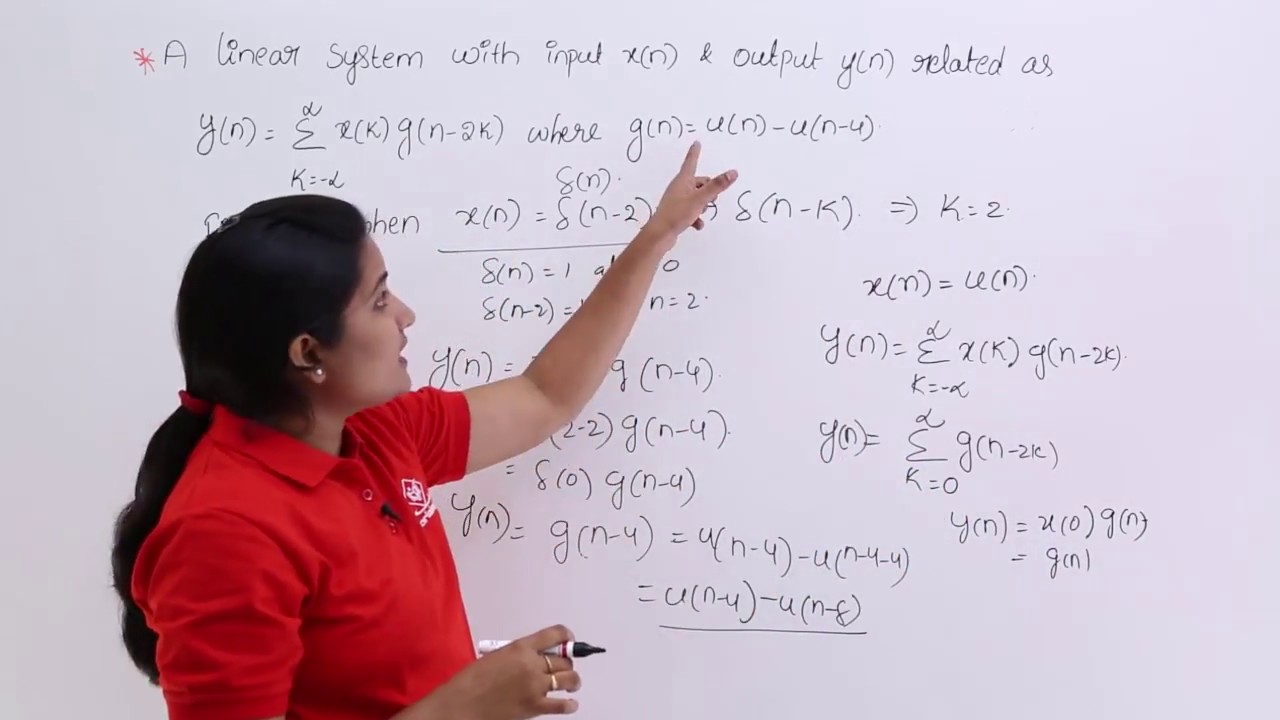 * A linear System with input x(n) & output y(n) related as
y(n) = ∞ Σ K=-∞ x(K) g(n-2K) where g(n) = u(n) - u(n-4).
δ(n).
when x(n) = δ(n-2) δ(n-K). ⇒ K=2.
δ(n) = 1 0
δ(n-2) = n=2.
y(n) = g(n-4).
(2-2) g(n-4).
= δ(0) g(n-4)
y(n) = g(n-4) = u(n-4) - u(n-4-4)
= u(n-4) - u(n-8)
x(n) = u(n).
y(n) = ∞ Σ K=-∞ x(K) g(n-2K).
y(n) = ∞ Σ K=0 g(n-2K)
y(n) = x(0) g(n)
= g(n)